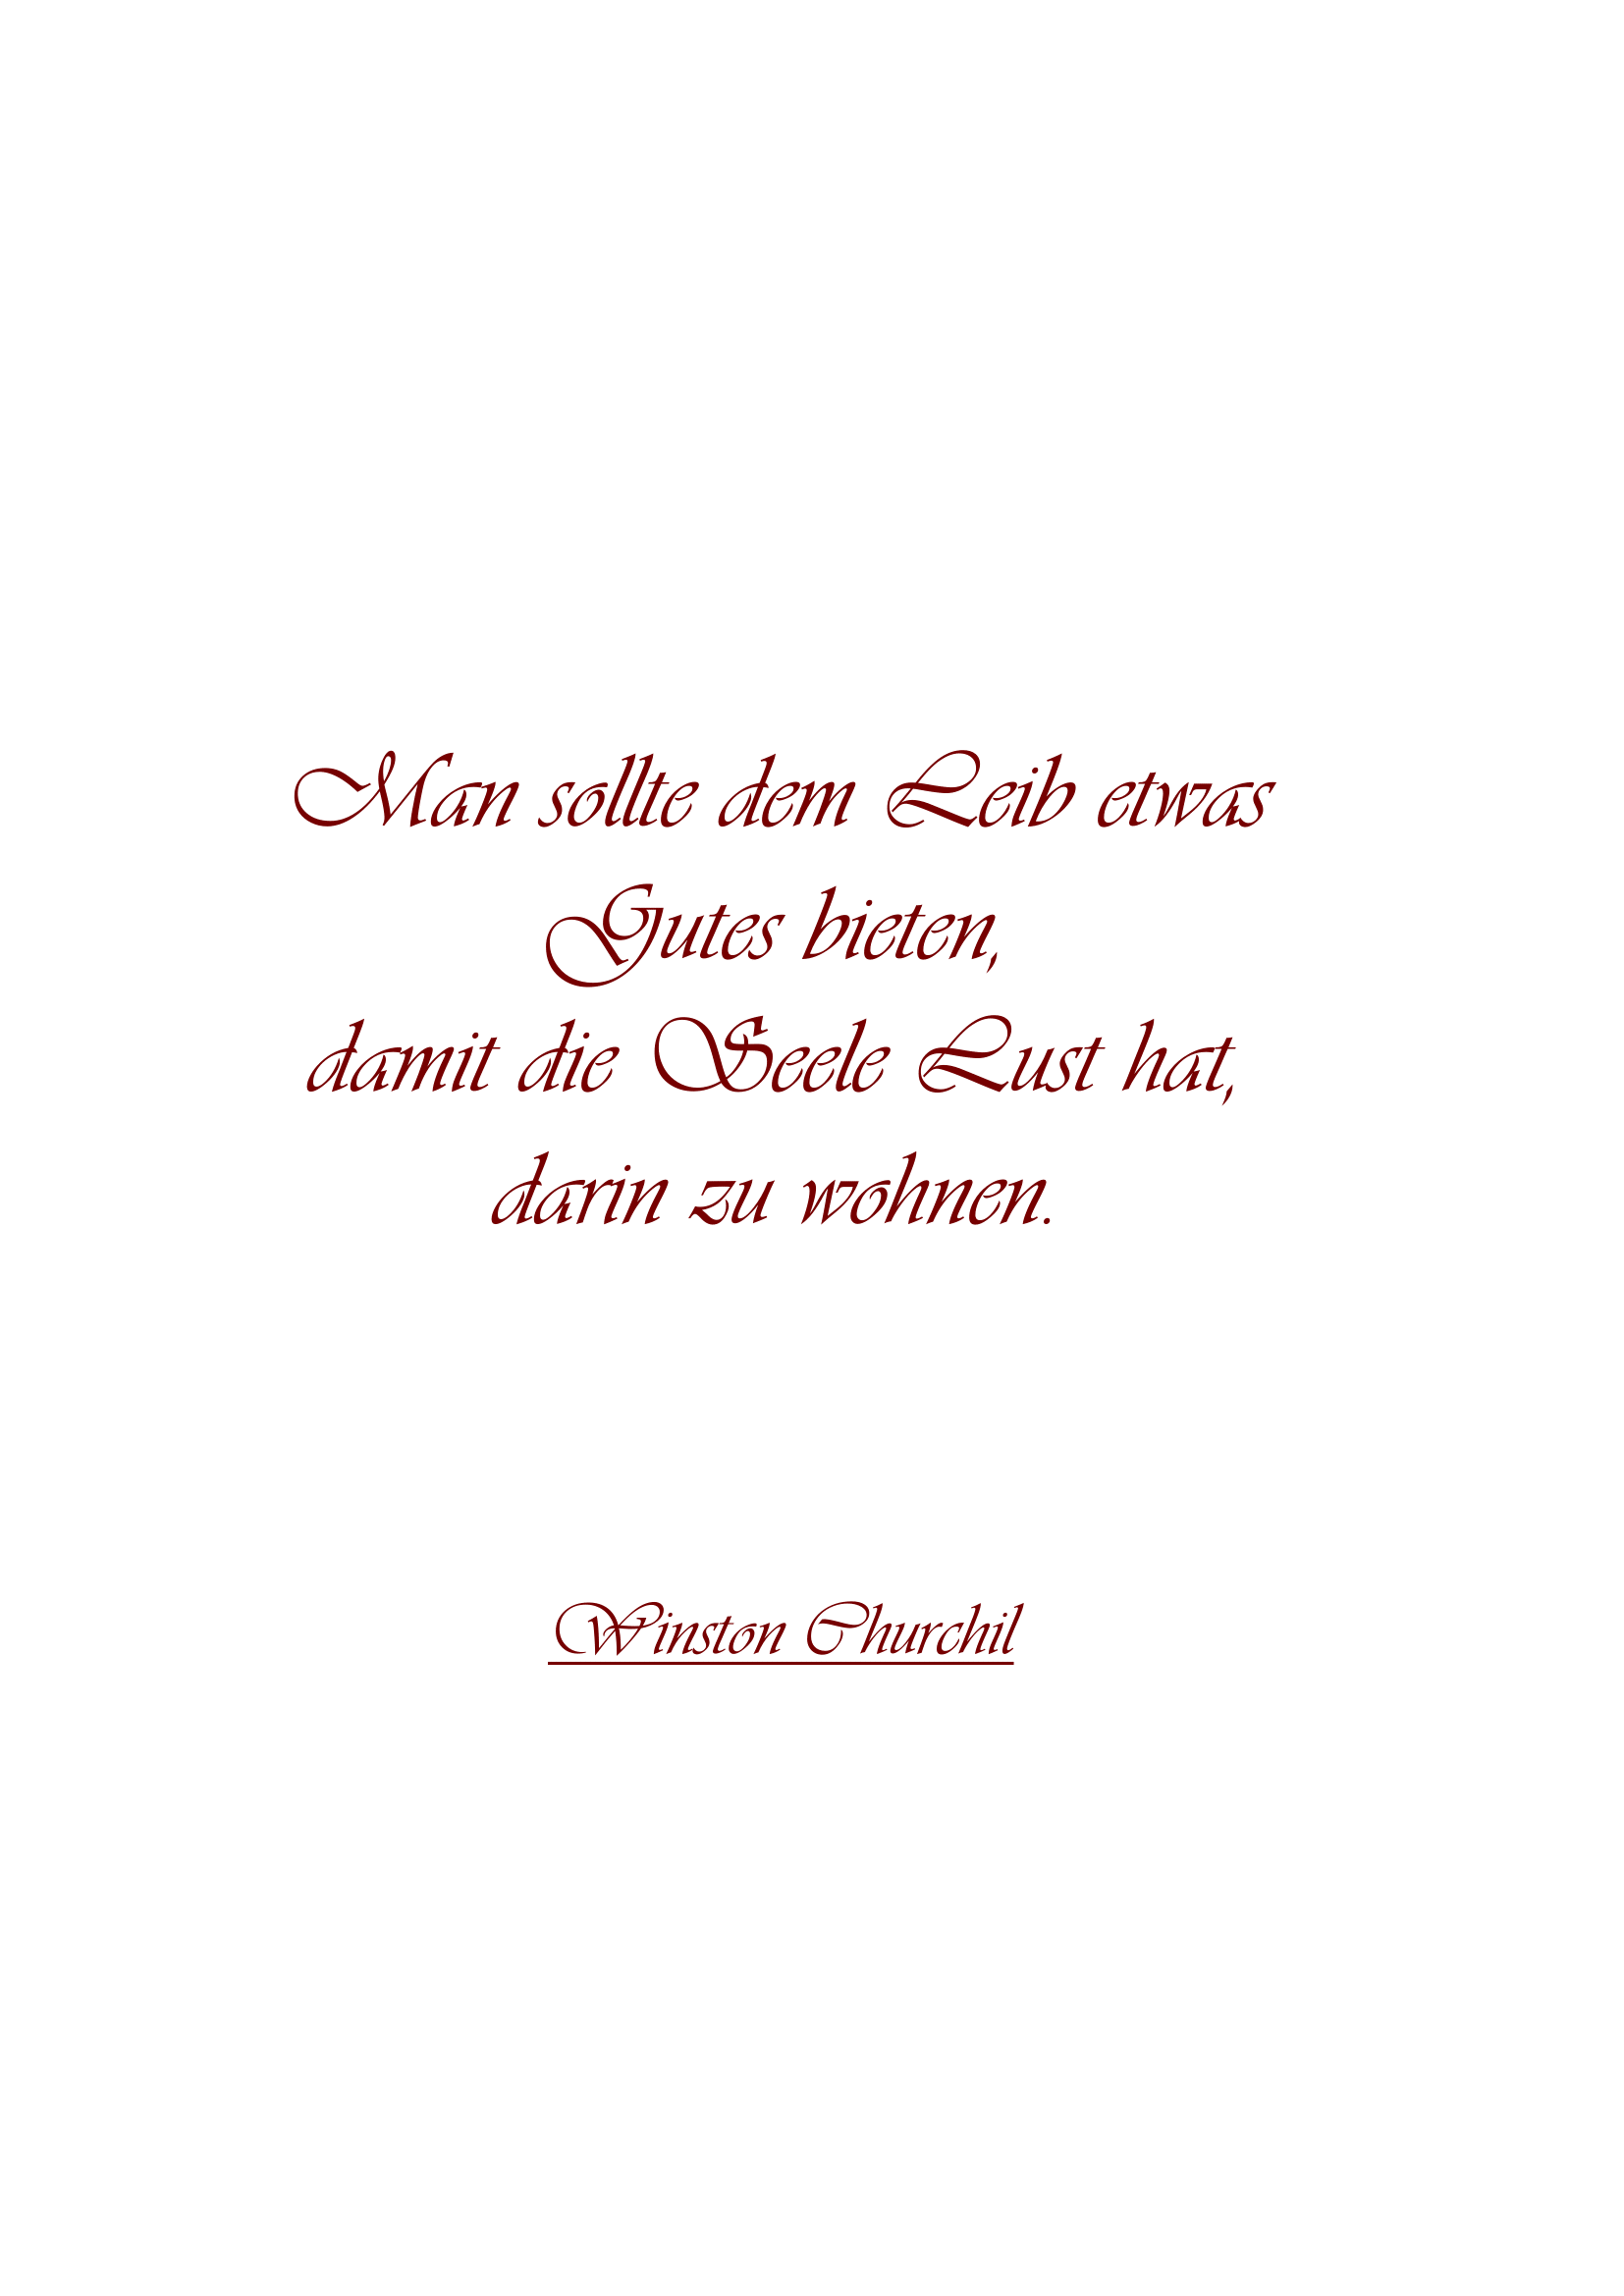 Man sollte dem Leib etwas
Gutes bieten,
damit die Seele Lust hat,
darin zu wohnen.
Winston Churchil